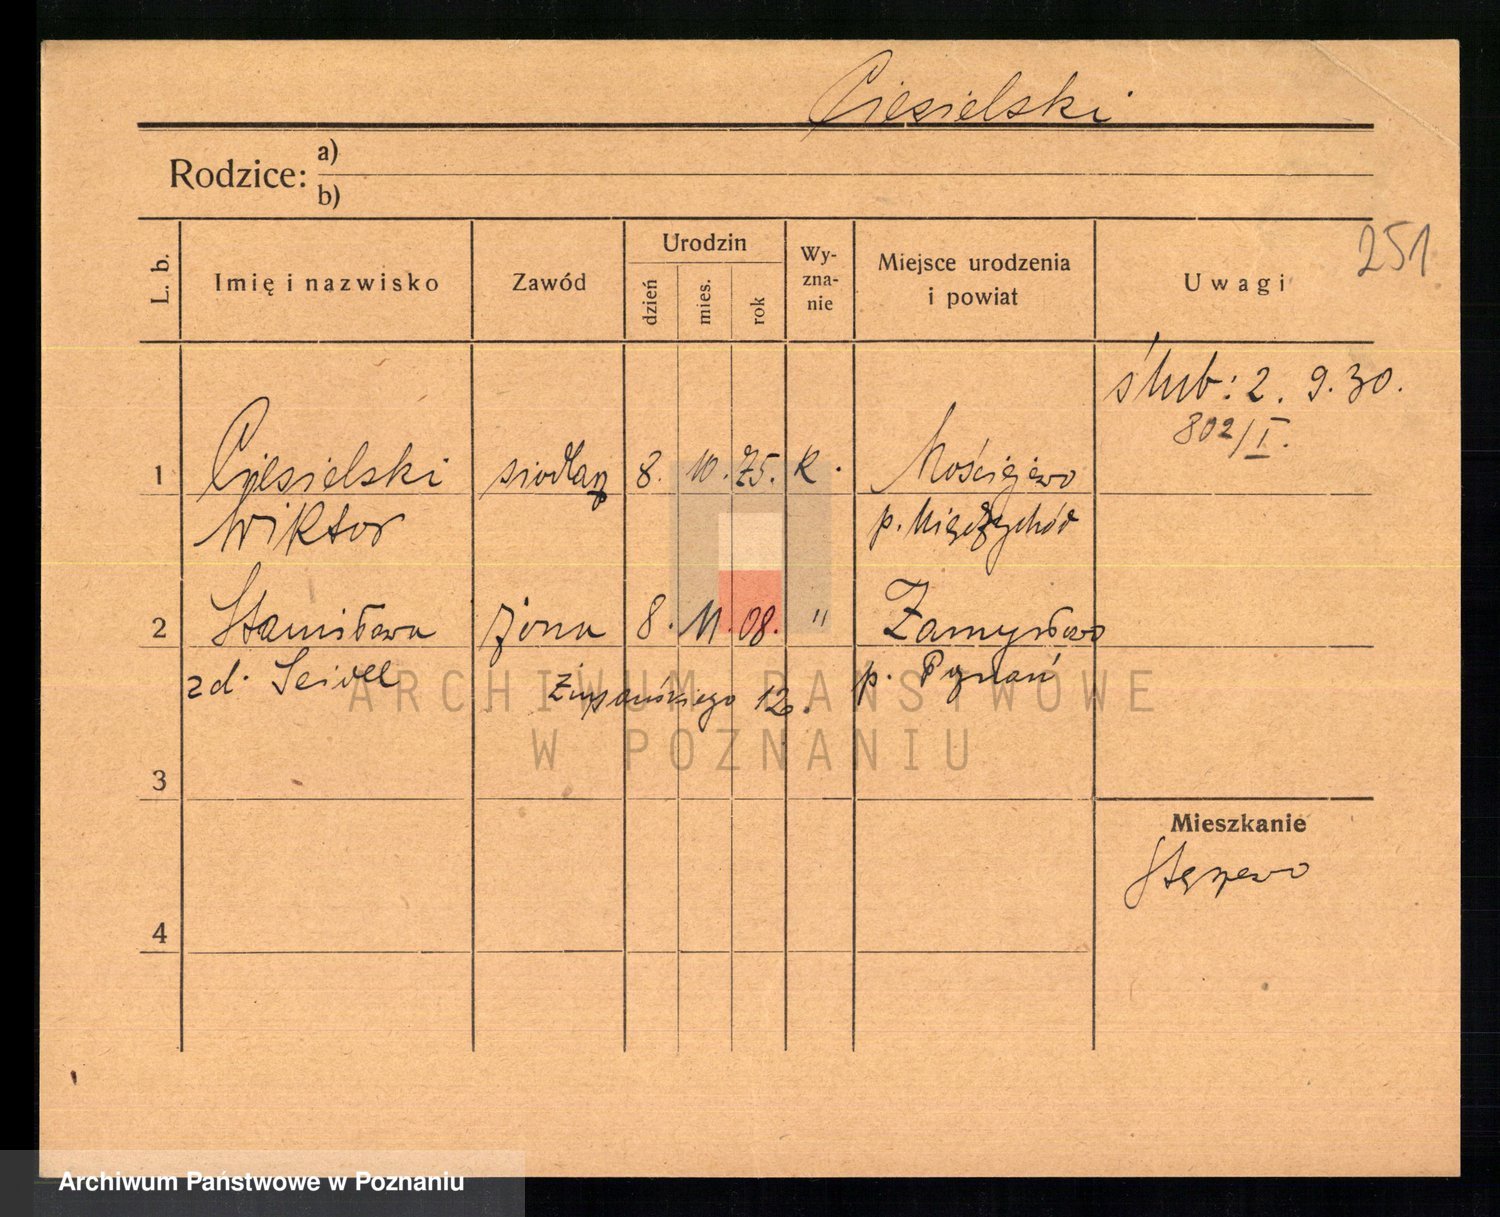 Ciesielski
Rodzice: a)
b)
251
L. b. Imię i nazwisko Zawód Urodzin dzień mies. rok Wy-zna-nie Miejsce urodzenia i powiat Uwagi
ślub: 2. 9. 30.
802/I.
1 Ciesielski siodlarz 8. 10. 75. k. Mościejewo
Wiktor p. Międzychód
2 Stanisława żona 8. 11. 08. " Zamysłowo
zd. Seidel p. Poznań
12.
ARCHIWUM PAŃSTWOWE
W POZNANIU
3
Mieszkanie
Stęszewo
4
Archiwum Państwowe w Poznaniu